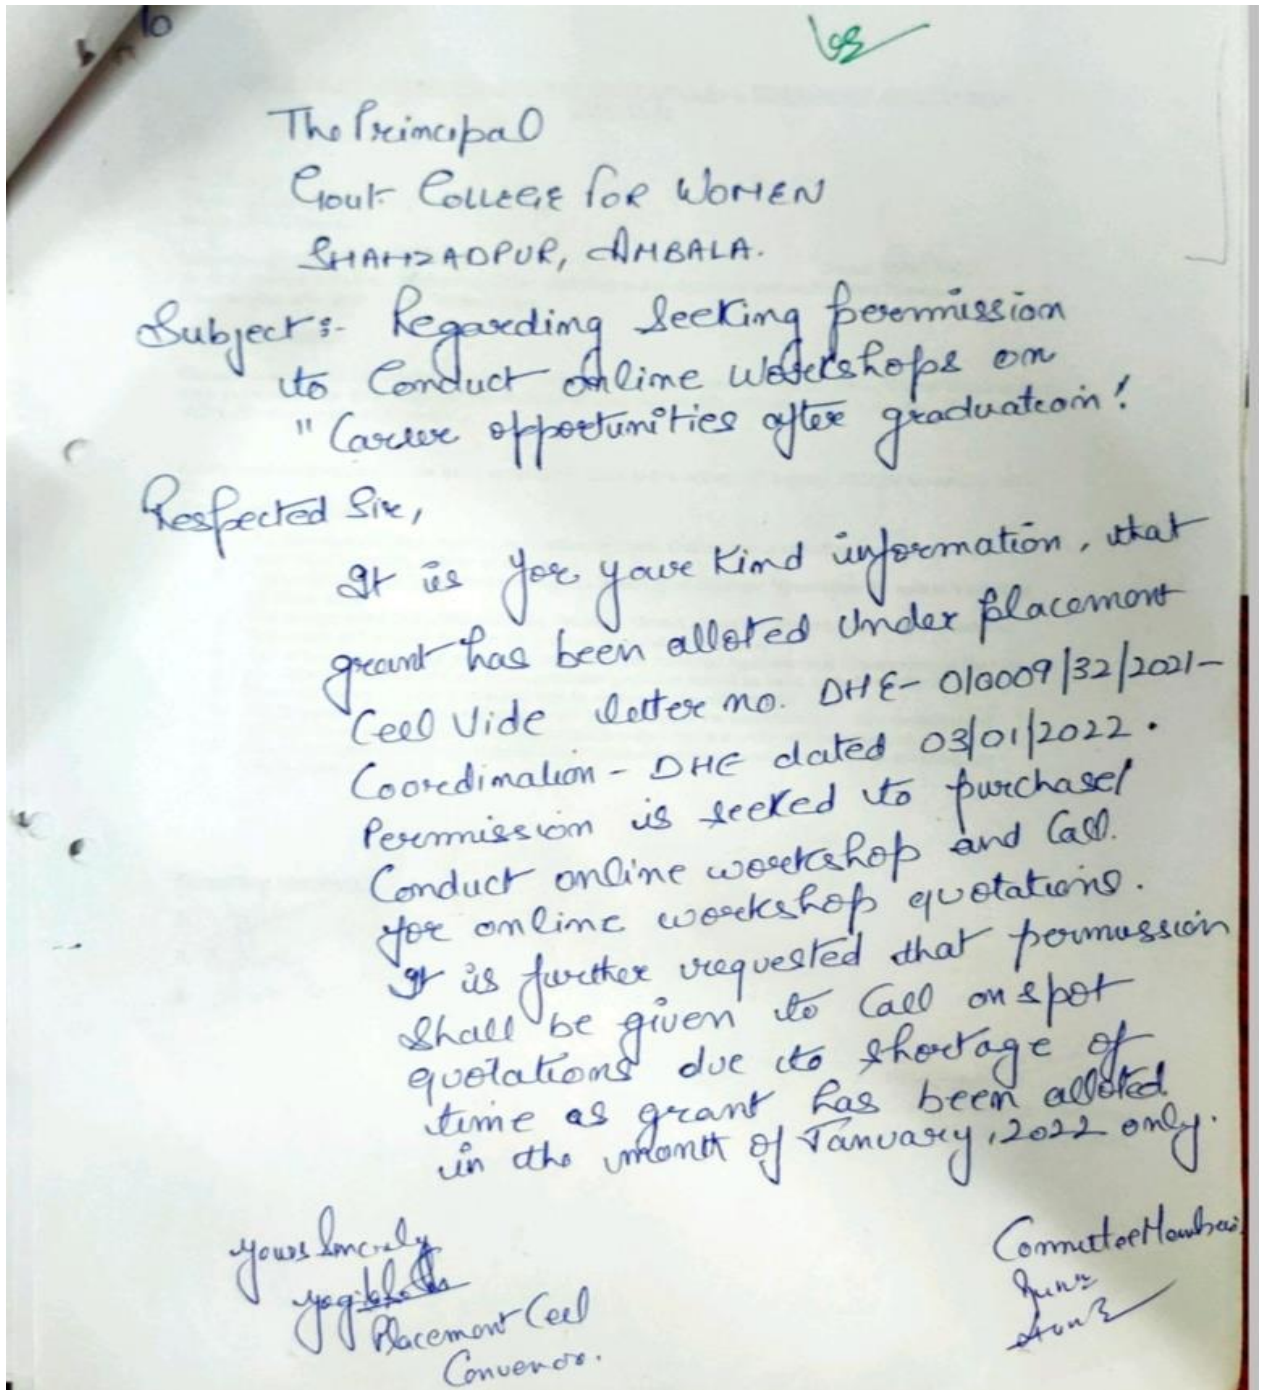 To
The Principal
Govt. COLLEGE FOR WOMEN
SHAHZADPUR, AMBALA.
Subject:- Regarding Seeking permission
to Conduct online workshops on
"Career opportunities after graduation!
Respected Sir,
It is for your Kind information, that
grant has been alloted Under placement
Ceel Vide letter no. DHE- 010009/32/2021-
Coordination - DHE dated 03/01/2022.
Permission is seeked to purchase/
Conduct online workshop and Call
for online workshop quotations.
It is further requested that permission
Shall be given to Call on spot
quotations due to shortage of
time as grant has been alloted
in the month of January, 2022 only.
Yours Sincerely
Placement Ceel
Convenor.
Committee Members